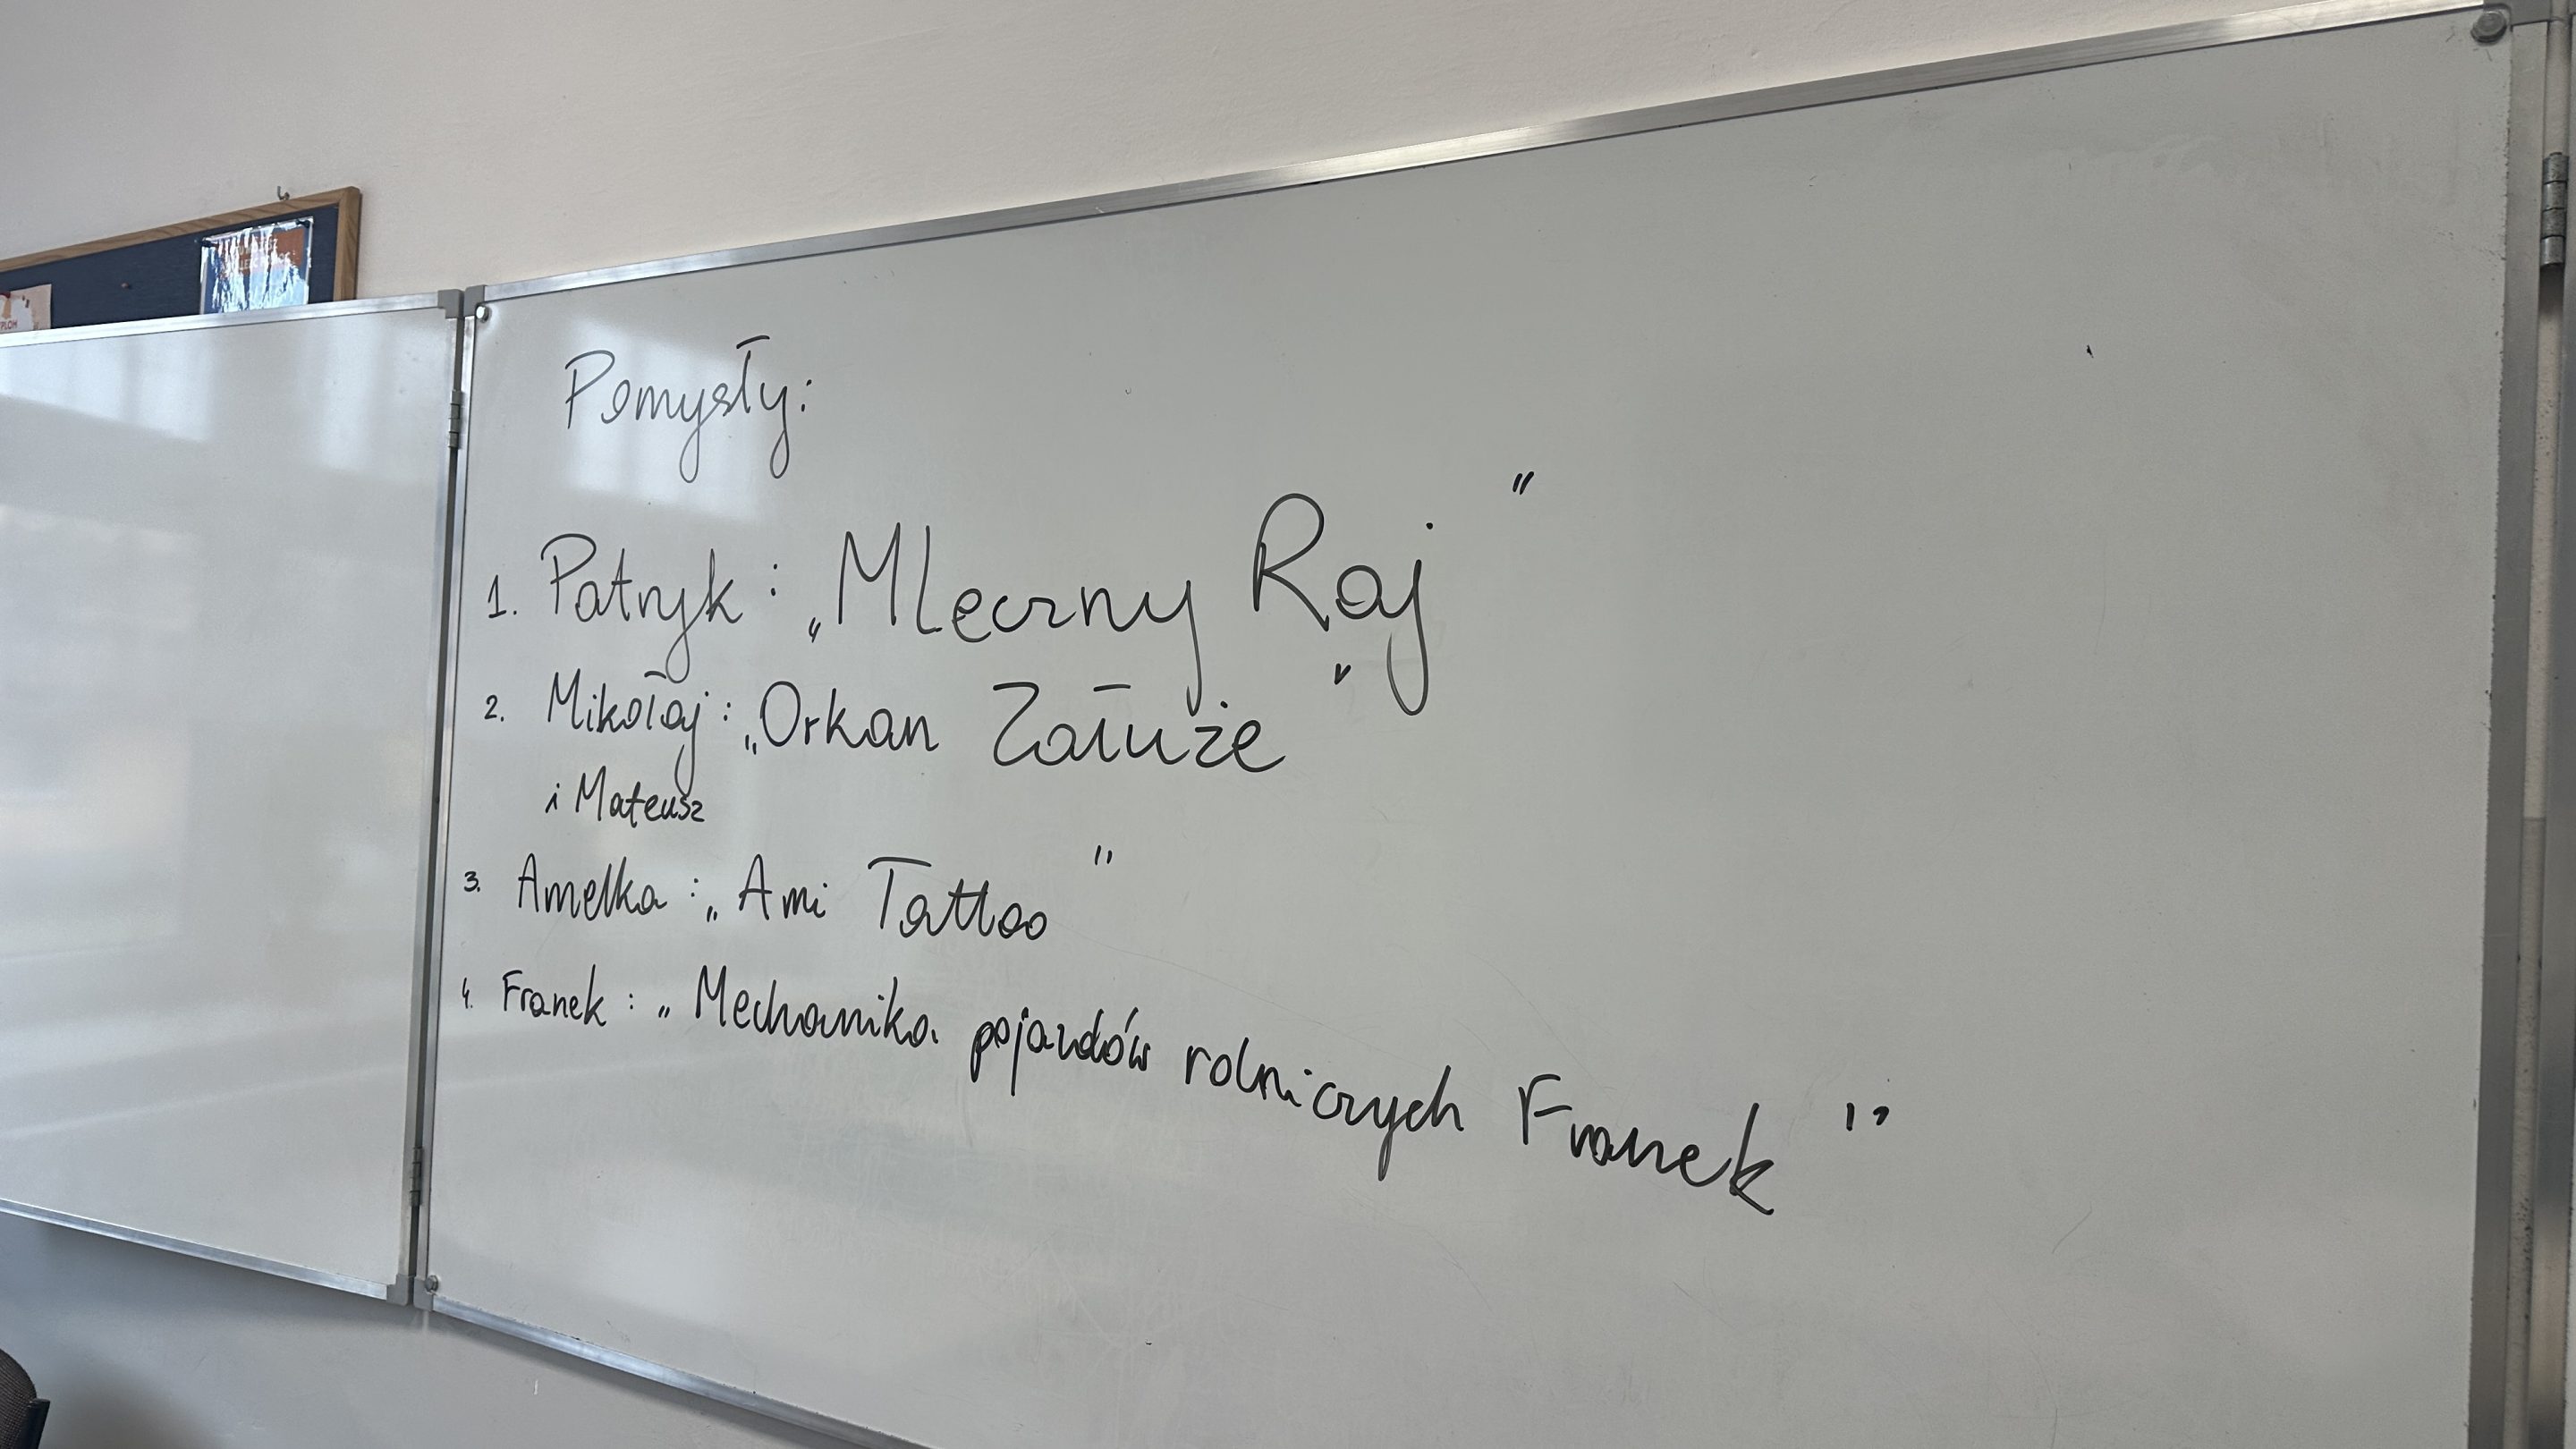 Pomysły:
1. Patryk: „Mleczny Raj"
2. Mikołaj: „Orkan Załuże"
i Mateusz
3. Amelka: „Ami Tattoo"
4. Franek: „Mechanika pojazdów rolniczych Franek"